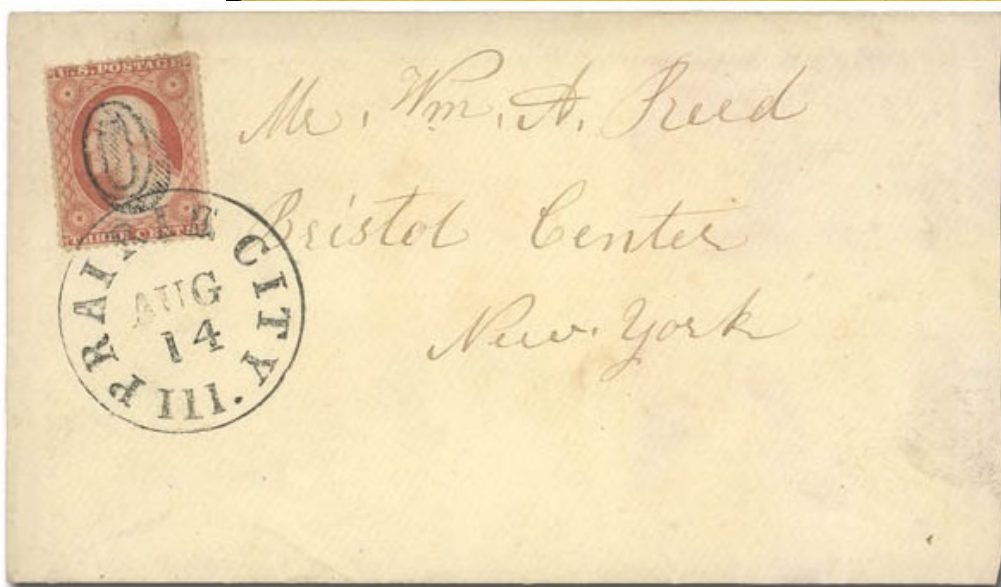 U.S. POSTAGE
THREE CENTS
PRAIRIE CITY Ill.
AUG
14
Mr. Wm. A. Reed
Bristol Center
New York